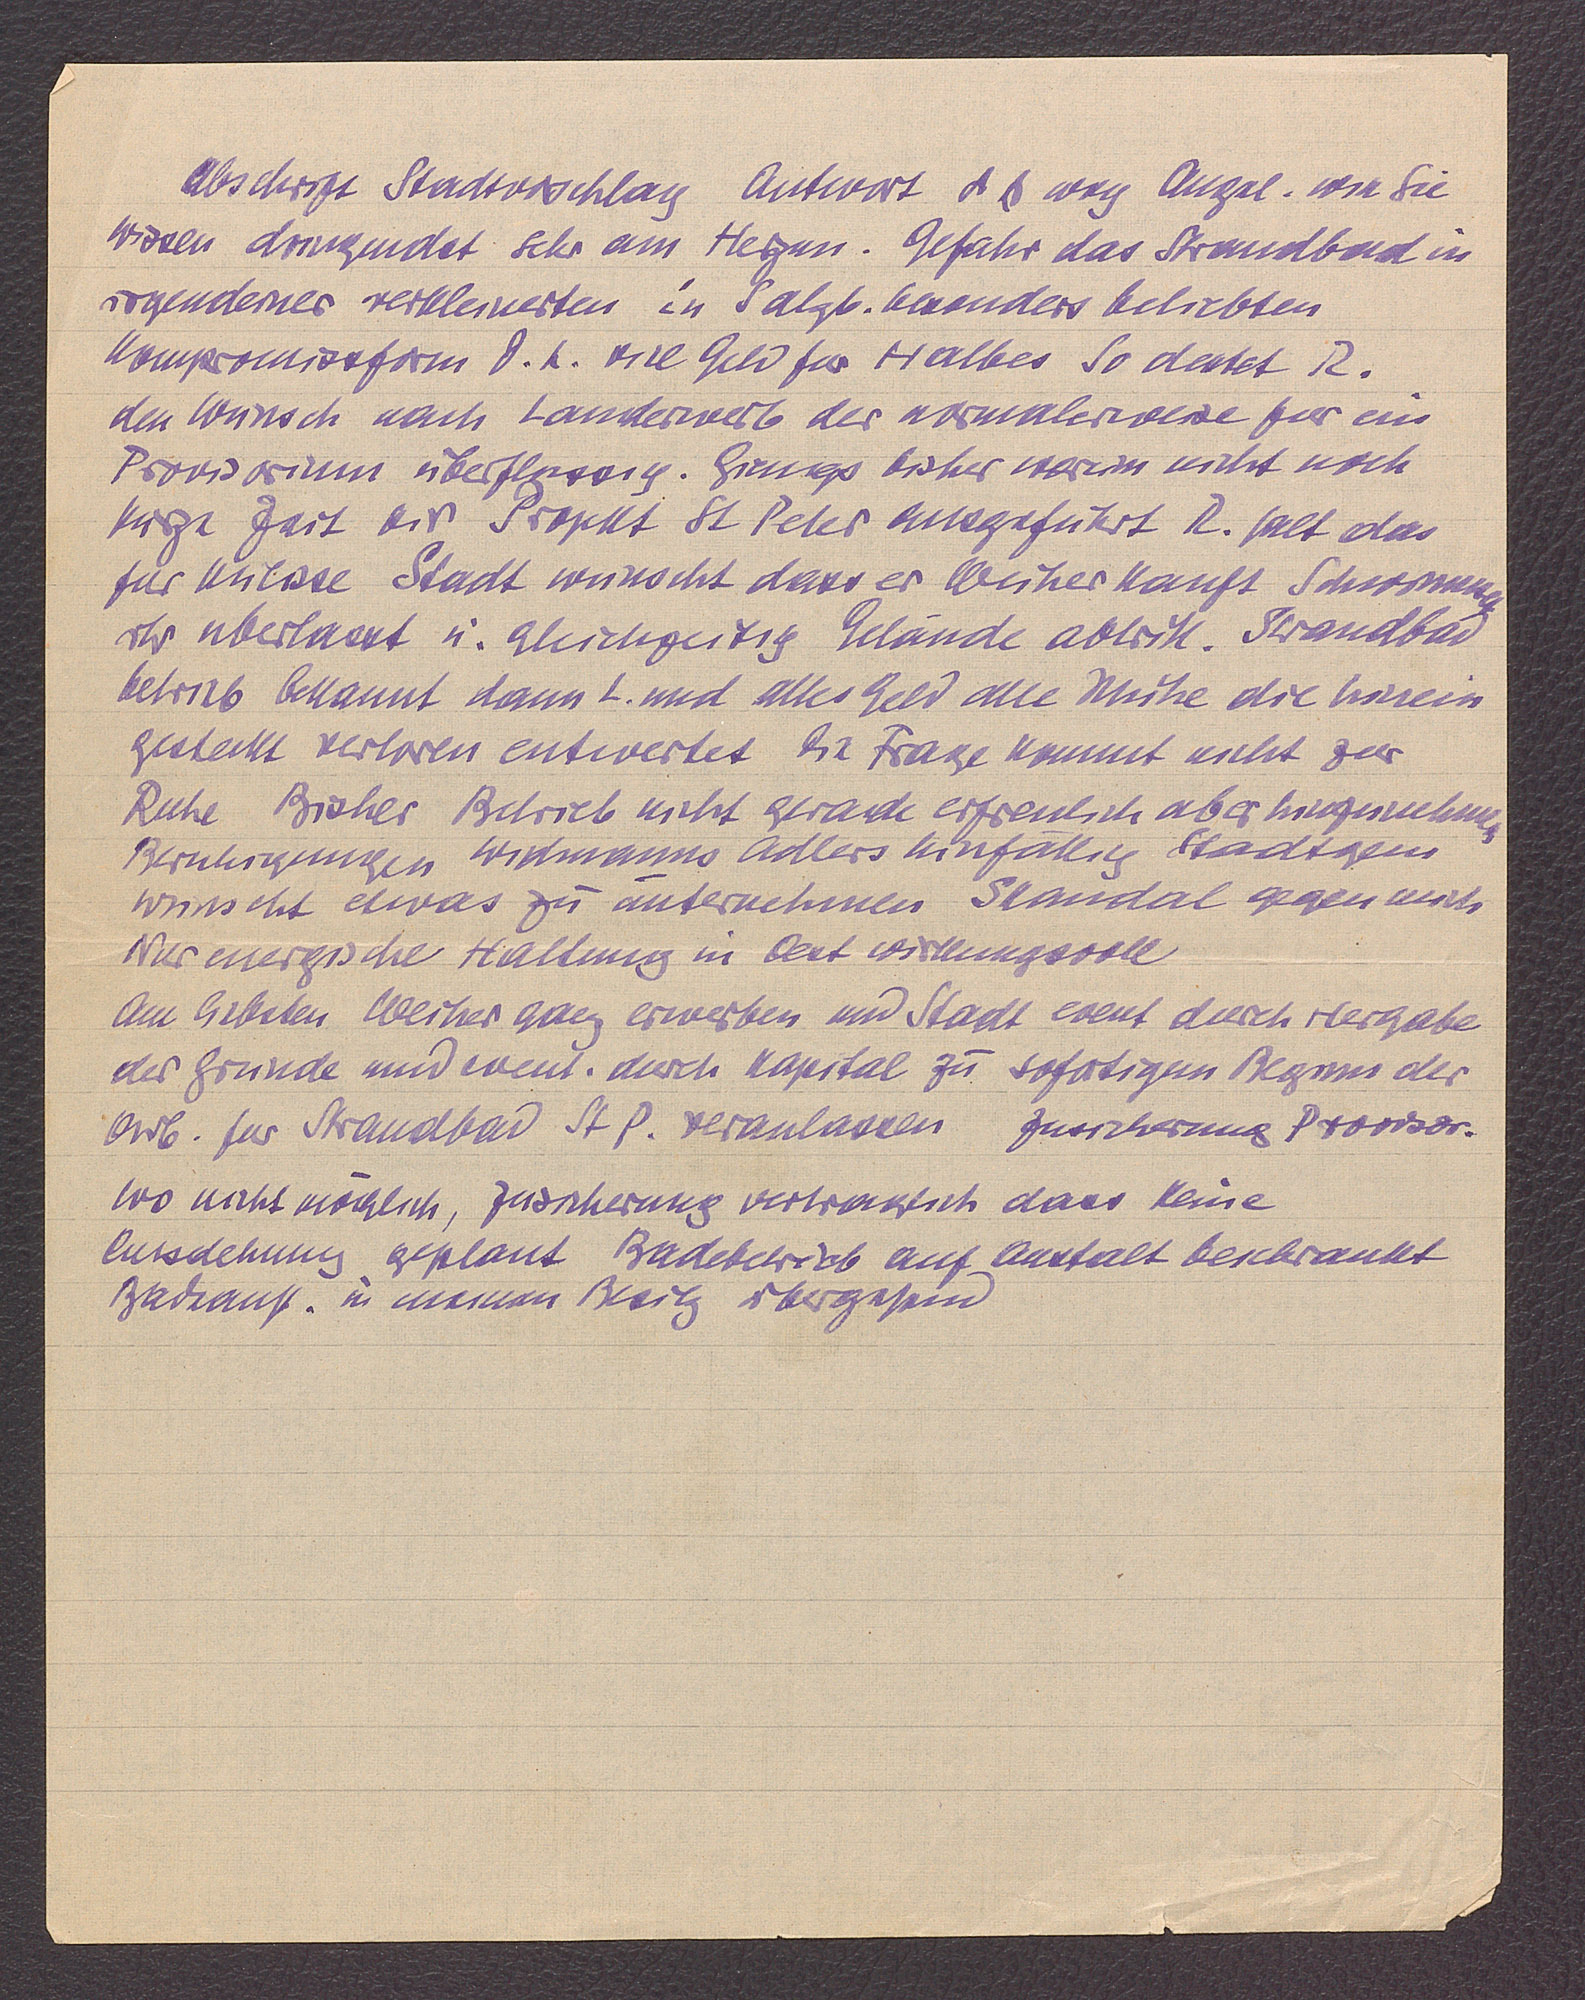 Abschrift Stadtvorschlag Antwort weg Angel. wie Sie
wissen dringendst sehr am Herzen. Gefahr das Strandbad in
irgendeiner verkleinerten in Salzb. besonders beliebten
Kompromissform d. h. viel Geld für Halbes So deutet R.
den Wunsch nach Landerwerb der normalerweise fur ein
Provisorium überflussig. Giengs bisher warum nicht noch
kurze Zeit bis Projekt St Peter ausgeführt R. halt das
fur Kulisse Stadt wunscht dass er Weiher kauft
ihr uberlasst u. gleichzeitig Gelände abtritt. Strandbad
betrieb bekannt dann L. und alles Geld alle Mühe die hinein
gesteckt verloren entwertet Die Frage kommt nicht zur
Ruhe Bisher Betrieb nicht gerade erfreulich aber hinzunehmen
Beruhigungen Widmanns Adlers hinfällig Stadtgem
wunscht etwas zu unternehmen Skandal gegen mich
Nur energische Haltung in Oest wirkungsvoll
Am liebsten Weiher ganz erwerben und Stadt event durch Hergabe
der Grunde und event. durch Kapital zu sofortigem Beginn der
Arb. fur Strandbad St P. veranlassen Zusicherung Provisor.
Wo nicht möglich, Zusicherung vertraglich dass keine
Ausdehnung geplant Badebetrieb auf Anstalt beschrankt
Badeanst. in meinen Besitz übergehend